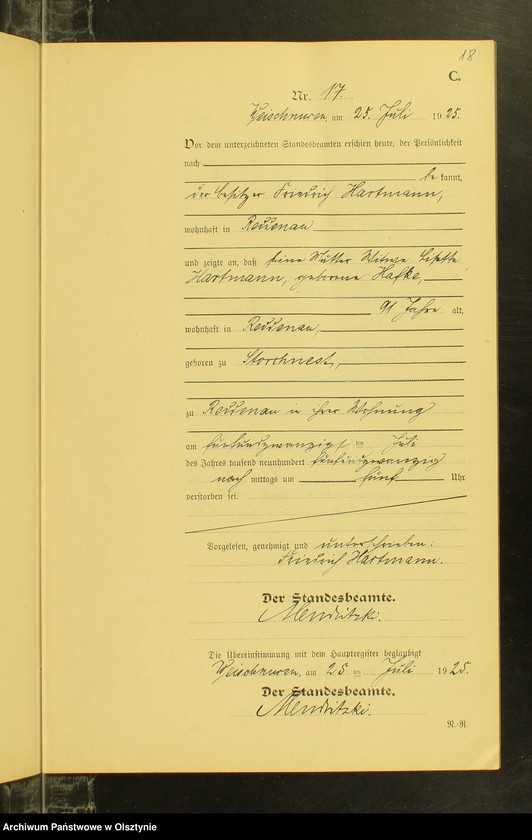 18
C.
Nr. 17.
Weischnuren, am 25. Juli 1925.
Vor dem unterzeichneten Standesbeamten erschien heute, der Persönlichkeit
nach
be kannt,
der Besitzer Friedrich Hartmann,
wohnhaft in Reussenau
und zeigte an, daß seine Mutter Witwe
Hartmann, geborene Hafke,
91 Jahre alt,
wohnhaft in Reussenau,
geboren zu Storchnest,
zu Reussenau in ihrer Wohnung
am fünfundzwanzigsten Juli
des Jahres tausend neunhundert fünfundzwanzig
nach mittags um fünf Uhr
verstorben sei.
Vorgelesen, genehmigt und unterschrieben:
Friedrich Hartmann.
Der Standesbeamte.
Mendritzki.
Die Übereinstimmung mit dem Hauptregister beglaubigt
Weischnuren, am 25 ten Juli 1925.
Der Standesbeamte.
Mendritzki.
N.-R.
Archiwum Państwowe w Olsztynie